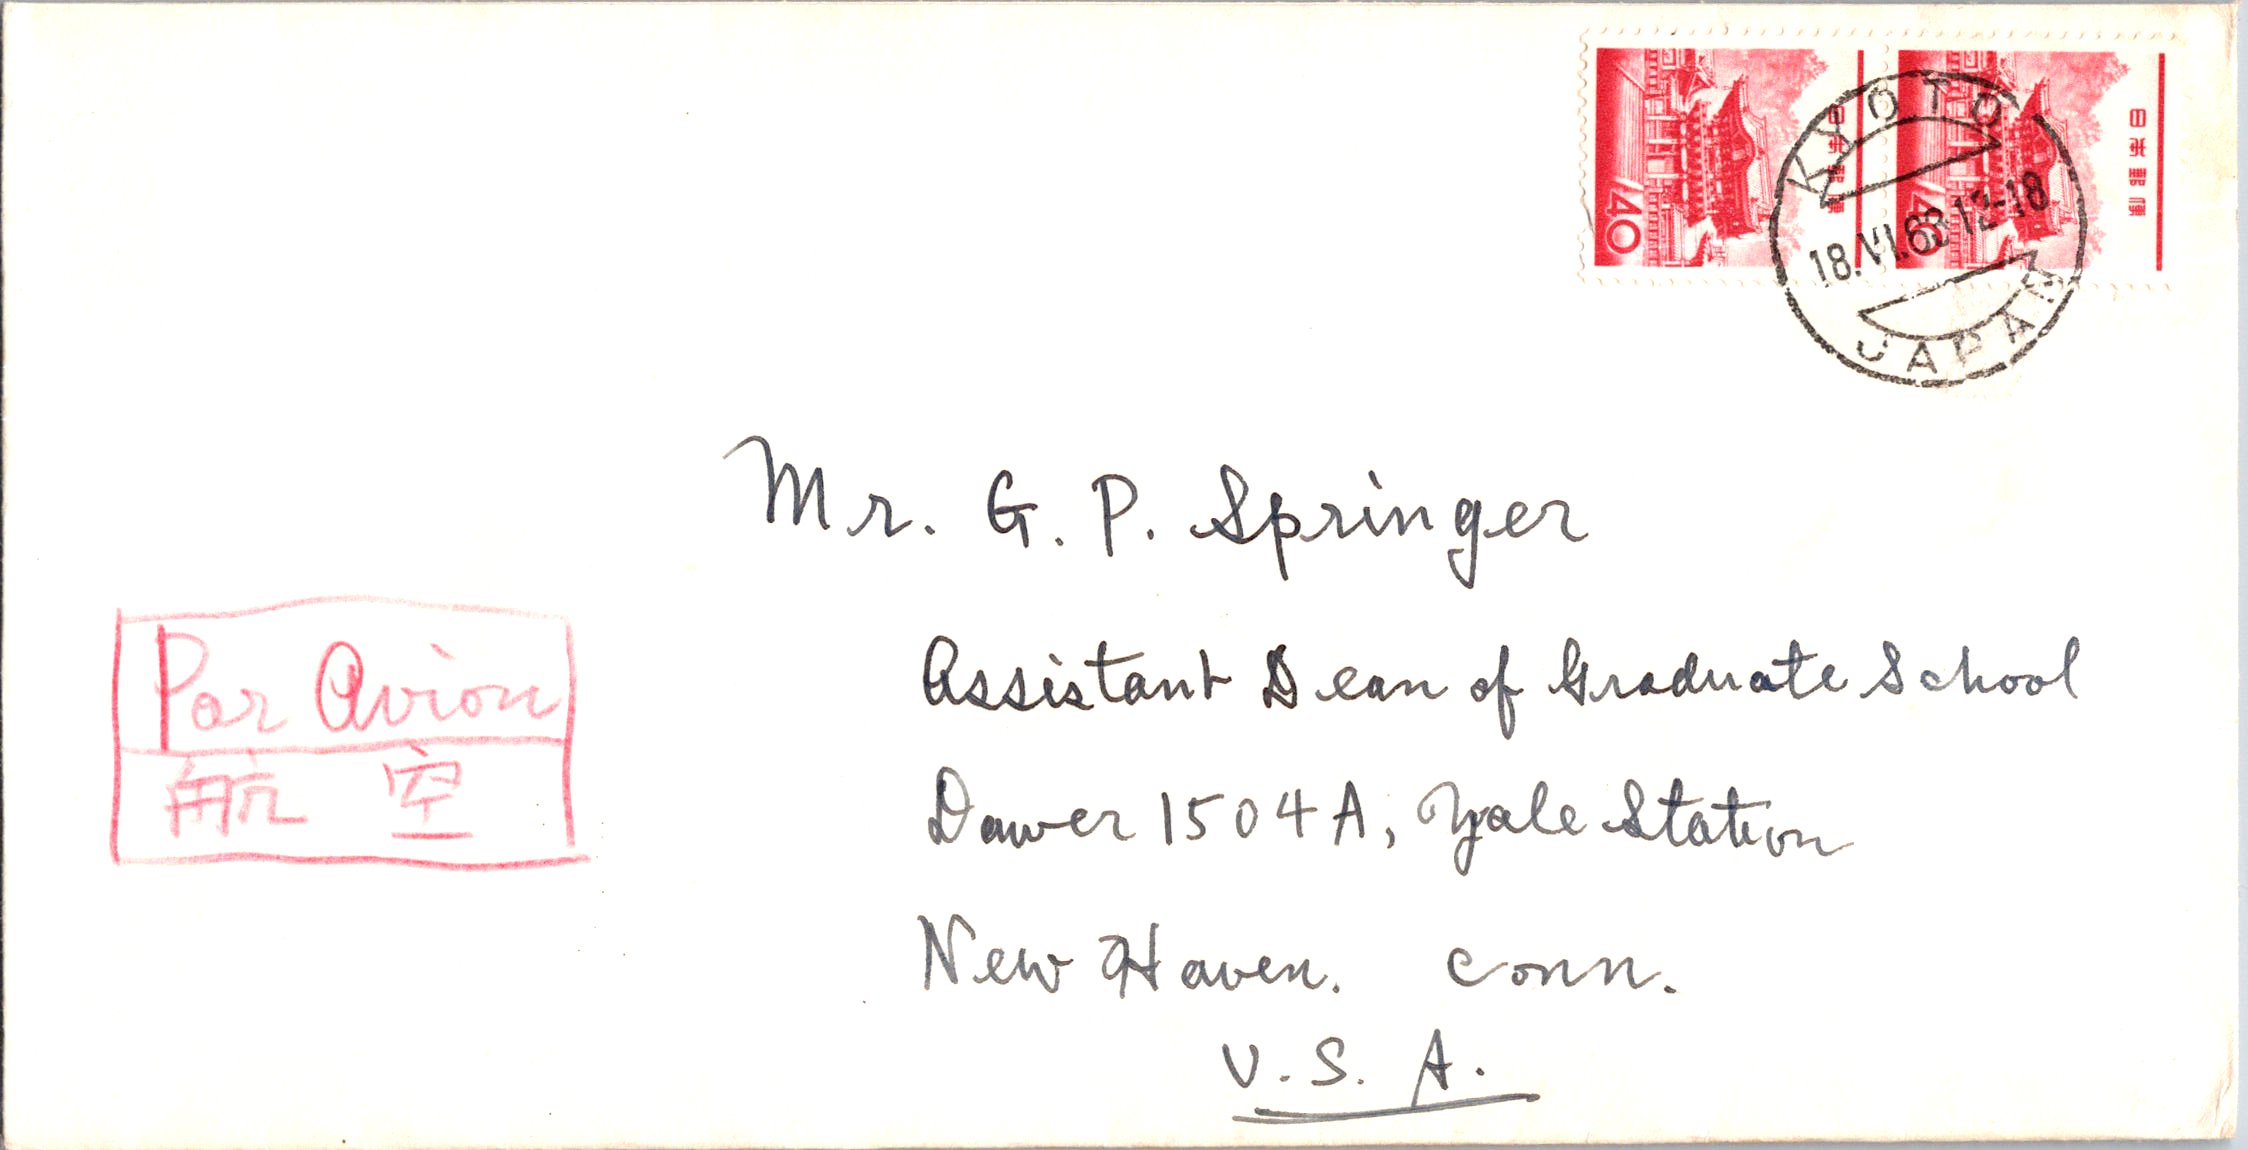 日本郵便
40
日本郵便
40
KYOTO
18.VI.63 12-18
JAPAN
Mr. G. P. Springer
Assistant Dean of Graduate School
Dawer 1504A, Yale Station
New Haven. Conn.
U. S. A.
Par Avion
航空